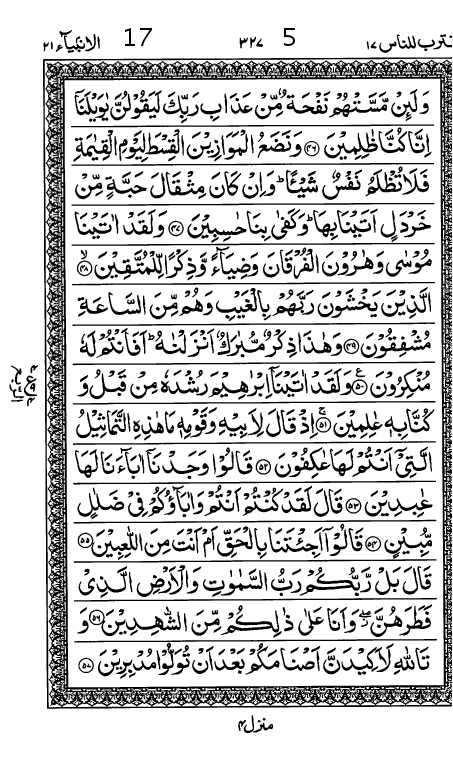 اقترب للناس ١٧ ٣٢٧ 5 17 الانبيآء ٢١
وَلَئِنْ مَّسَّتْهُمْ نَفْحَةٌ مِّنْ عَذَابِ رَبِّكَ لَيَقُوْلُنَّ يٰوَيْلَنَآ
اِنَّا كُنَّا ظٰلِمِيْنَ ﴿٤٦﴾ وَنَضَعُ الْمَوَازِيْنَ الْقِسْطَ لِيَوْمِ الْقِيٰمَةِ
فَلَا تُظْلَمُ نَفْسٌ شَيْـًٔا ؕ وَاِنْ كَانَ مِثْقَالَ حَبَّةٍ مِّنْ
خَرْدَلٍ اَتَيْنَا بِهَا ؕ وَكَفٰى بِنَا حٰسِبِيْنَ ﴿٤٧﴾ وَلَقَدْ اٰتَيْنَا
مُوْسٰى وَهٰرُوْنَ الْفُرْقَانَ وَضِيَآءً وَّذِكْرًا لِّلْمُتَّقِيْنَ ﴿٤٨﴾ ۙ
الَّذِيْنَ يَخْشَوْنَ رَبَّهُمْ بِالْغَيْبِ وَهُمْ مِّنَ السَّاعَةِ
مُشْفِقُوْنَ ﴿٤٩﴾ وَهٰذَا ذِكْرٌ مُّبٰرَكٌ اَنْزَلْنٰهُ ؕ اَفَاَنْتُمْ لَهٗ
مُنْكِرُوْنَ ﴿٥٠﴾ ع وَلَقَدْ اٰتَيْنَآ اِبْرٰهِيْمَ رُشْدَهٗ مِنْ قَبْلُ وَ
كُنَّا بِهٖ عٰلِمِيْنَ ﴿٥١﴾ ۚ اِذْ قَالَ لِاَبِيْهِ وَقَوْمِهٖ مَا هٰذِهِ التَّمَاثِيْلُ
الَّتِيْٓ اَنْتُمْ لَهَا عٰكِفُوْنَ ﴿٥٢﴾ قَالُوْا وَجَدْنَآ اٰبَآءَنَا لَهَا
عٰبِدِيْنَ ﴿٥٣﴾ قَالَ لَقَدْ كُنْتُمْ اَنْتُمْ وَاٰبَآؤُكُمْ فِيْ ضَلٰلٍ
مُّبِيْنٍ ﴿٥٤﴾ قَالُوْٓا اَجِئْتَنَا بِالْحَقِّ اَمْ اَنْتَ مِنَ اللّٰعِبِيْنَ ﴿٥٥﴾
قَالَ بَلْ رَّبُّكُمْ رَبُّ السَّمٰوٰتِ وَالْاَرْضِ الَّذِيْ
فَطَرَهُنَّ ۖ وَاَنَا عَلٰى ذٰلِكُمْ مِّنَ الشّٰهِدِيْنَ ﴿٥٦﴾ وَ
تَاللّٰهِ لَاَكِيْدَنَّ اَصْنَامَكُمْ بَعْدَ اَنْ تُوَلُّوْا مُدْبِرِيْنَ ﴿٥٧﴾
منزل ٤